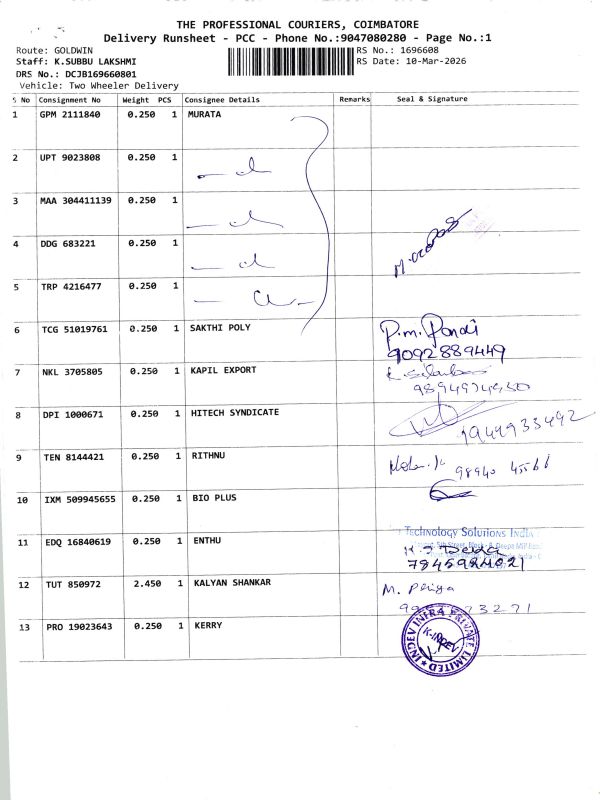 THE PROFESSIONAL COURIERS, COIMBATORE
Delivery Runsheet - PCC - Phone No.:9047080280 - Page No.:1
Route: GOLDWIN RS No.: 1696608
Staff: K.SUBBU LAKSHMI RS Date: 10-Mar-2026
DRS No.: DCJB169660801
Vehicle: Two Wheeler Delivery
S No Consignment No Weight PCS Consignee Details Remarks Seal & Signature
1 GPM 2111840 0.250 1 MURATA
2 UPT 9023808 0.250 1
3 MAA 304411139 0.250 1
4 DDG 683221 0.250 1
5 TRP 4216477 0.250 1
6 TCG 51019761 0.250 1 SAKTHI POLY P.m. Pandi
9092889449
7 NKL 3705805 0.250 1 KAPIL EXPORT
8 DPI 1000671 0.250 1 HITECH SYNDICATE
9 TEN 8144421 0.250 1 RITHNU 98940
10 IXM 509945655 0.250 1 BIO PLUS
Technology Solutions India
11 EDQ 16840619 0.250 1 ENTHU
7845924021
12 TUT 850972 2.450 1 KALYAN SHANKAR M. Priya
13 PRO 19023643 0.250 1 KERRY
INDEV INFRA PRIVATE LIMITED
K-INDEV